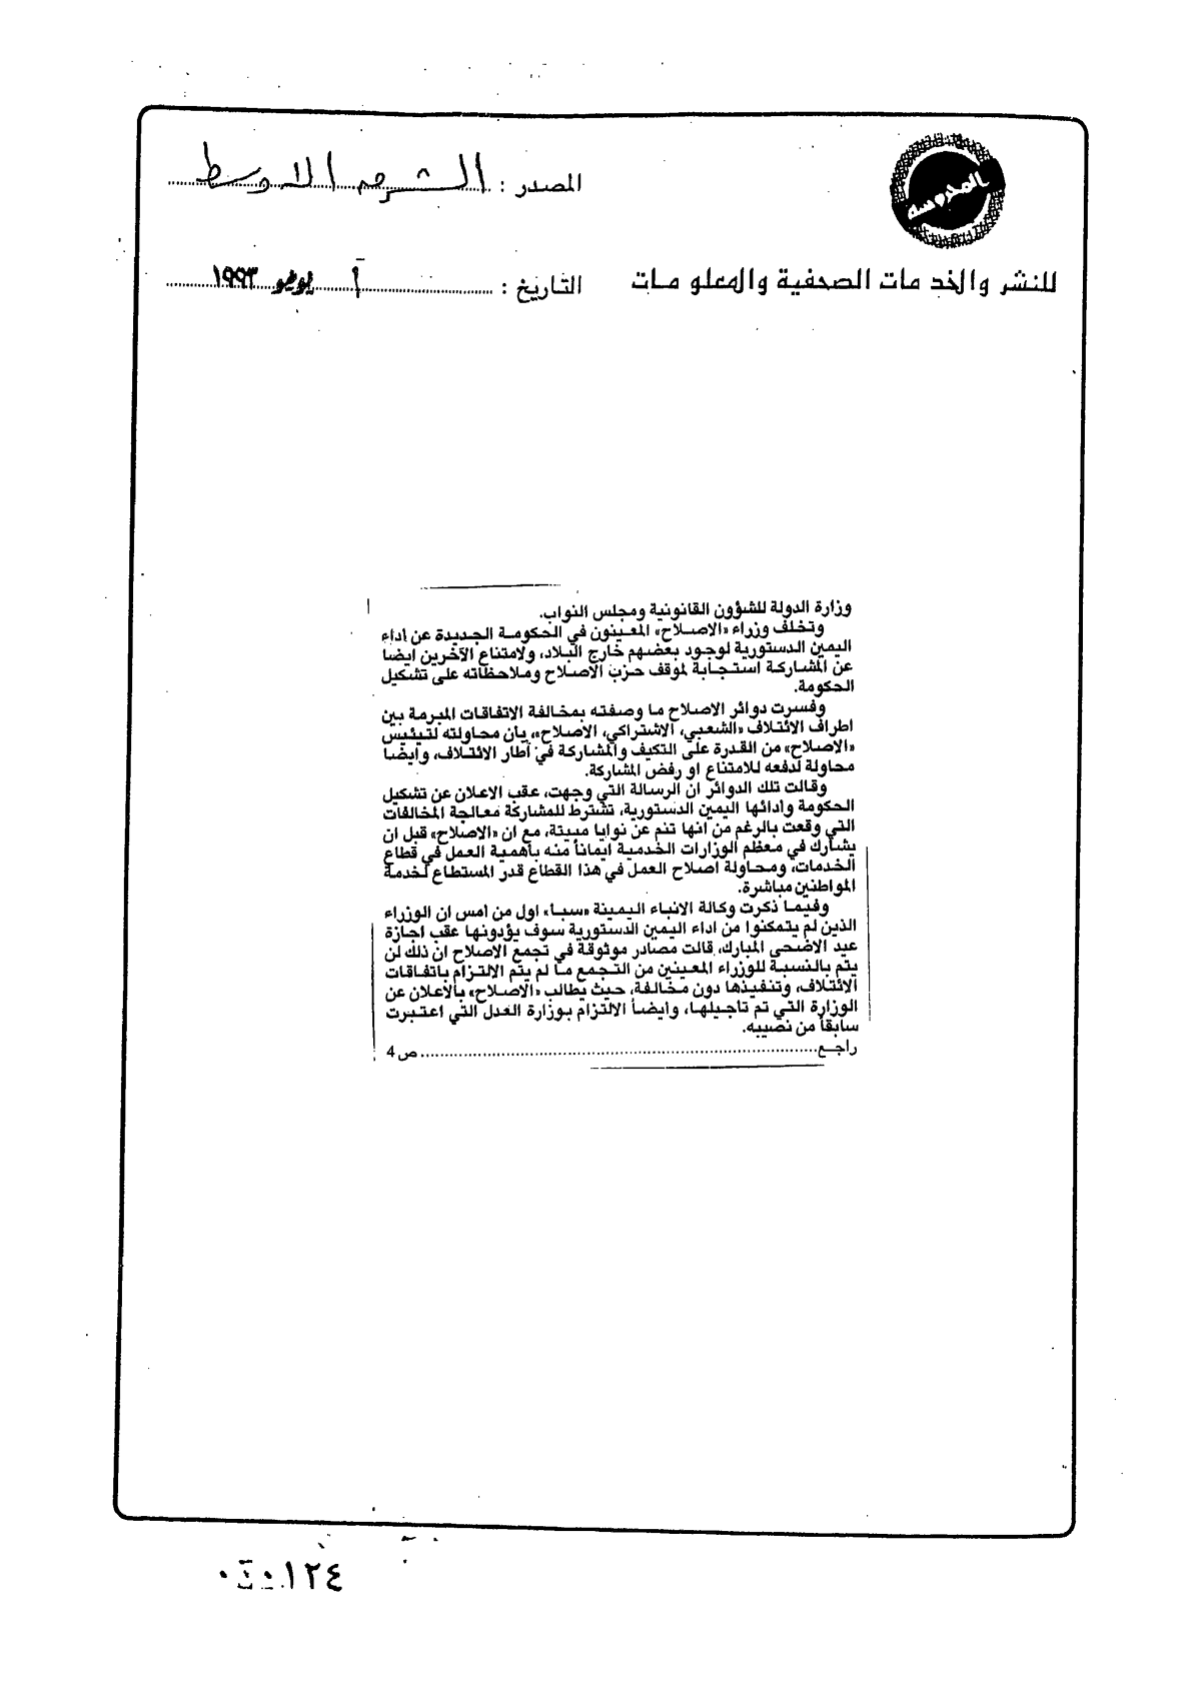 المحروسة
المصدر : الشرق الاوسط
للنشر والخدمات الصحفية والمعلومات
التاريخ : ١ يونيو ١٩٩٣
وزارة الدولة للشؤون القانونية ومجلس النواب.
وتخلف وزراء «الاصلاح» المعينون في الحكومة الجديدة عن اداء
اليمين الدستورية لوجود بعضهم خارج البلاد، ولامتناع الآخرين ايضا
عن المشاركة استجابة لموقف حزب الاصلاح وملاحظاته على تشكيل
الحكومة.
وفسرت دوائر الاصلاح ما وصفته بمخالفة الاتفاقات المبرمة بين
اطراف الائتلاف «الشعبي، الاشتراكي، الاصلاح»، بان محاولته لتيئيس
«الاصلاح» من القدرة على التكيف والمشاركة في أطار الائتلاف، وايضا
محاولة لدفعه للامتناع او رفض المشاركة.
وقالت تلك الدوائر ان الرسالة التي وجهت، عقب الاعلان عن تشكيل
الحكومة وادائها اليمين الدستورية، تشترط للمشاركة معالجة المخالفات
التي وقعت بالرغم من انها تنم عن نوايا مبيتة، مع ان «الاصلاح» قبل ان
يشارك في معظم الوزارات الخدمية ايماناً منه بأهمية العمل في قطاع
الخدمات، ومحاولة اصلاح العمل في هذا القطاع قدر المستطاع لخدمة
المواطنين مباشرة.
وفيما ذكرت وكالة الانباء اليمينة «سبا» اول من امس ان الوزراء
الذين لم يتمكنوا من اداء اليمين الدستورية سوف يؤدونها عقب اجازة
عيد الاضحى المبارك، قالت مصادر موثوقة في تجمع الاصلاح ان ذلك لن
يتم بالنسبة للوزراء المعينين من التجمع ما لم يتم الالتزام باتفاقات
الائتلاف، وتنفيذها دون مخالفة، حيث يطالب «الاصلاح» بالاعلان عن
الوزارة التي تم تاجيلها، وايضاً الالتزام بوزارة العدل التي اعتبرت
سابقاً من نصيبه.
راجع ............ ص 4
١٢٤